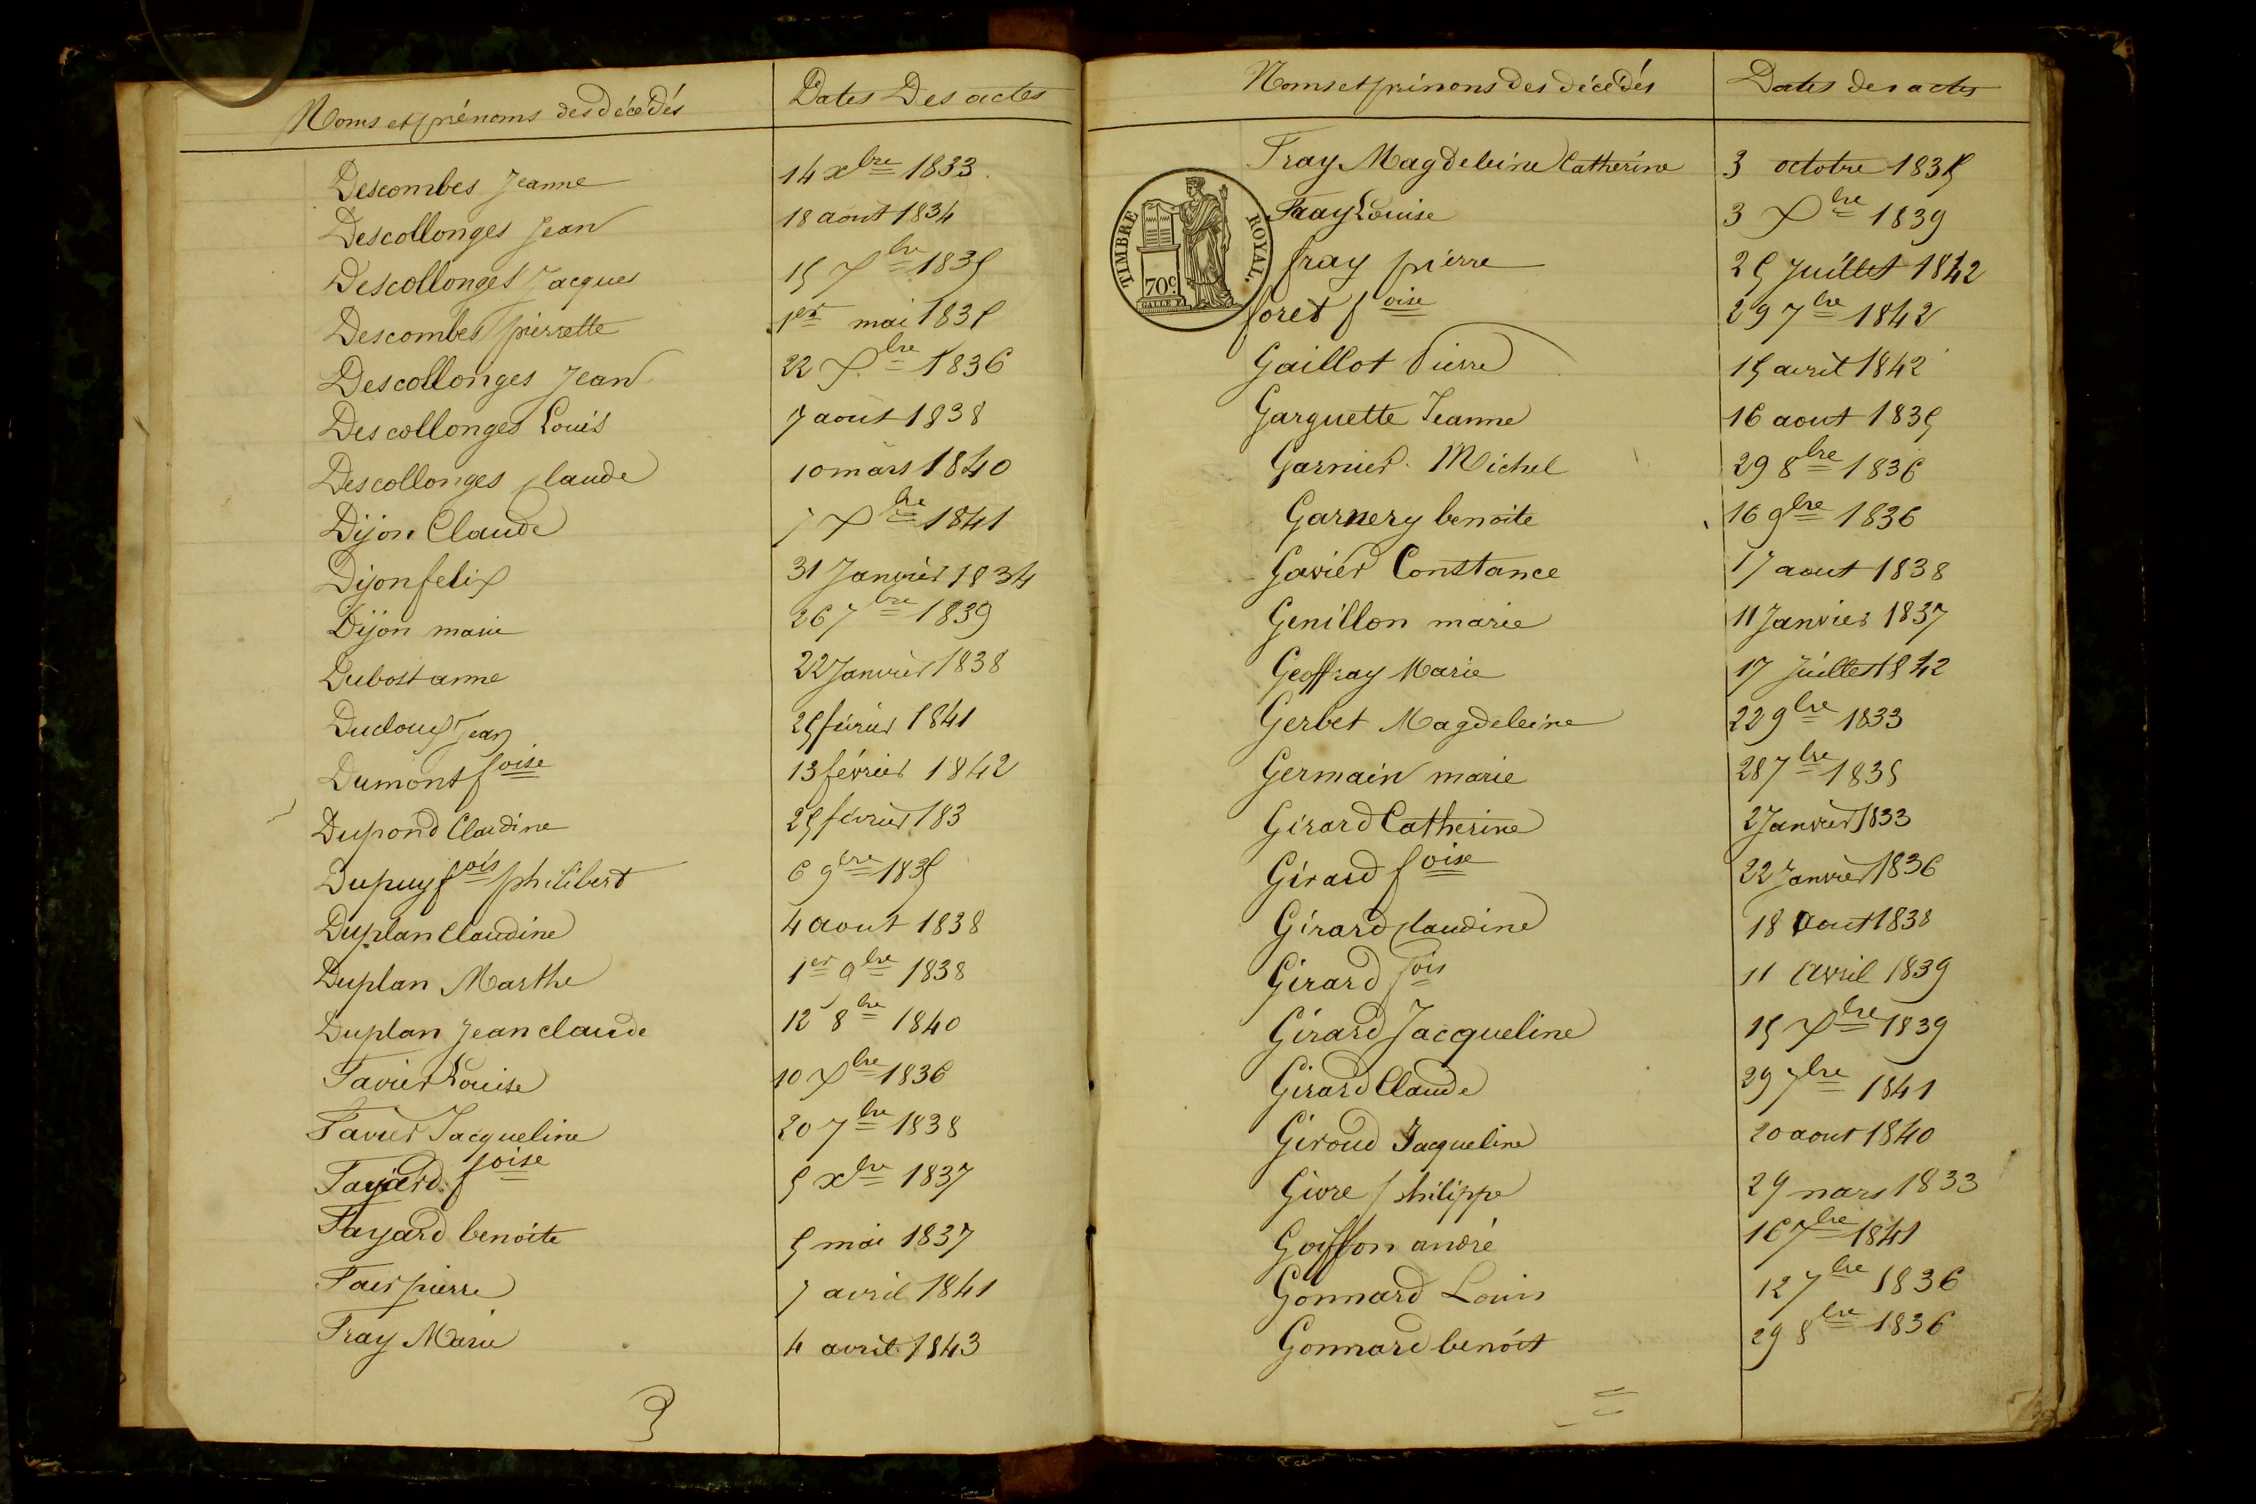 Noms et prénoms des décédés Dates Des actes
Descombes Jeanne 14 xbre 1833
Descollonges Jean 18 aout 1834
Descollonges Jacques 15 Xbre 1835
Descombes pierrette 1er mai 1835
Descollonges Jean 22 Xbre 1836
Descollonges Louis 7 aout 1838
Descollonges claude 10 mars 1840
Dijon Claude 7 Xbre 1841
Dijon felix 31 Janvier 1834
Dijon marie 26 7bre 1839
Dubost anne 22 Janvier 1838
Ducloux Jean 25 février 1841
Dumont foise 13 février 1842
Dupond Claudine 25 février 183
Dupuy fois philibert 6 9bre 1835
Duplan Claudine 4 aout 1838
Duplan Marthe 1er 9bre 1838
Duplan Jean claude 12 8bre 1840
Favier Louise 10 Xbre 1836
Favier Jacqueline 20 7bre 1838
Fayard foise 5 xbre 1837
Fayard benoite 5 mai 1837
pierre 7 avril 1841
Fray Marie 4 avril 1843
Noms et prénoms des décédés Dates des actes
Fray Magdeleine Catherine 3 octobre 1835
Fray Louise 3 Xbre 1839
fray pierre 25 Juillet 1842
foret foise 29 7bre 1842
TIMBRE ROYAL.
70c.
Gaillot Pierre 15 avril 1842
Garguette Jeanne 16 aout 1835
Garnier Michel 29 8bre 1836
Garnery benoite 16 9bre 1836
Gavier Constance 17 aout 1838
Genillon marie 11 Janvier 1837
Geoffray Marie 17 Juillet 1842
Gerbet Magdeleine 22 9bre 1833
Germain marie 28 7bre 1835
Girard Catherine 2 Janvier 1833
Girard foise 22 Janvier 1836
Girard claudine 18 aout 1838
Girard fois 11 Avril 1839
Girard Jacqueline 15 Xbre 1839
Girard Claude 29 7bre 1841
Giroud Jacqueline 20 aout 1840
Givre philippe 29 mars 1833
Goiffon andré 16 7bre 1841
Gonnard Louis 12 7bre 1836
Gonnard benoit 29 8bre 1836